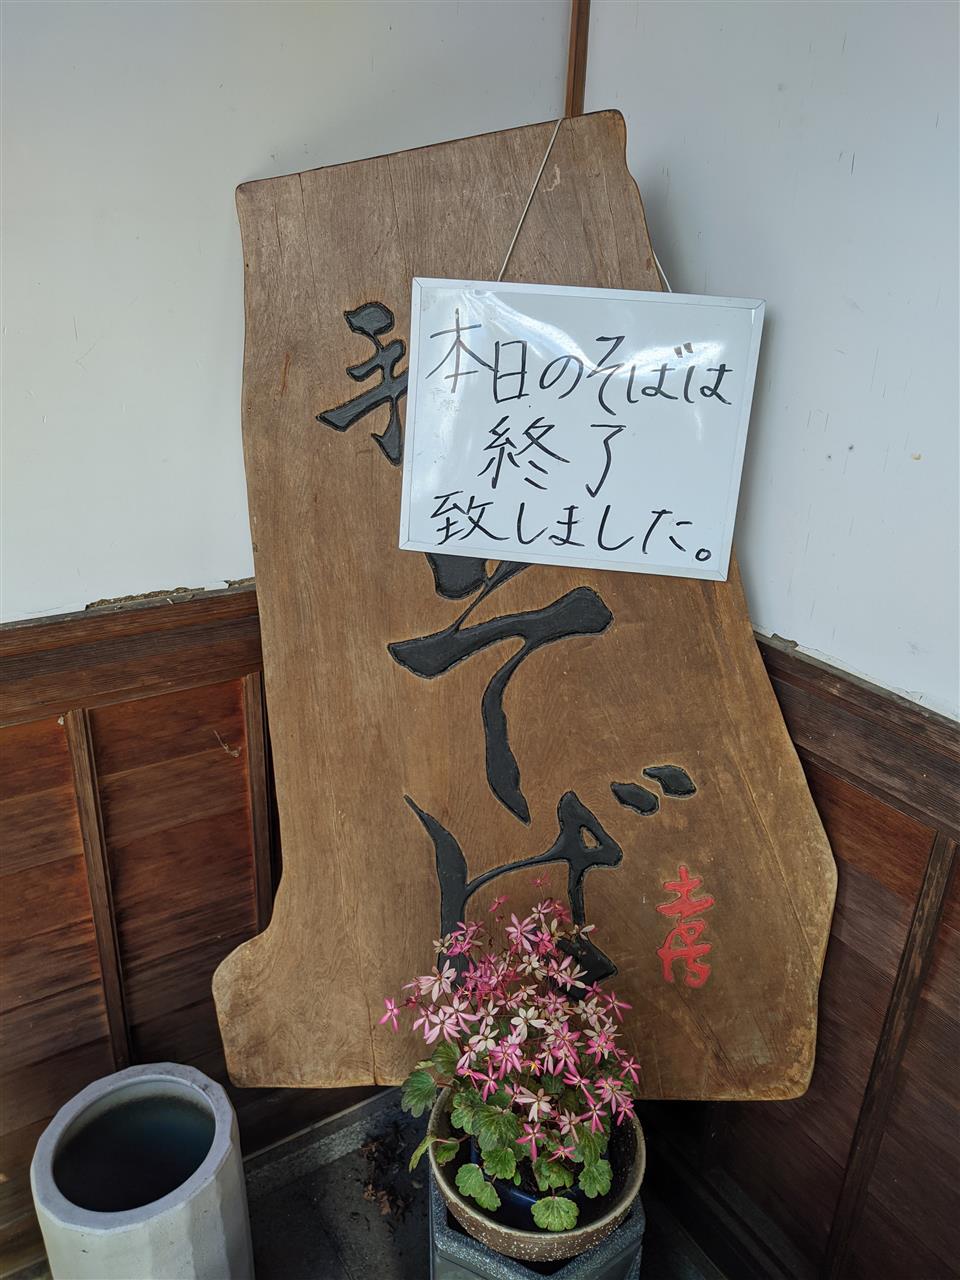 本日のそばは
終了
致しました。
手
そば